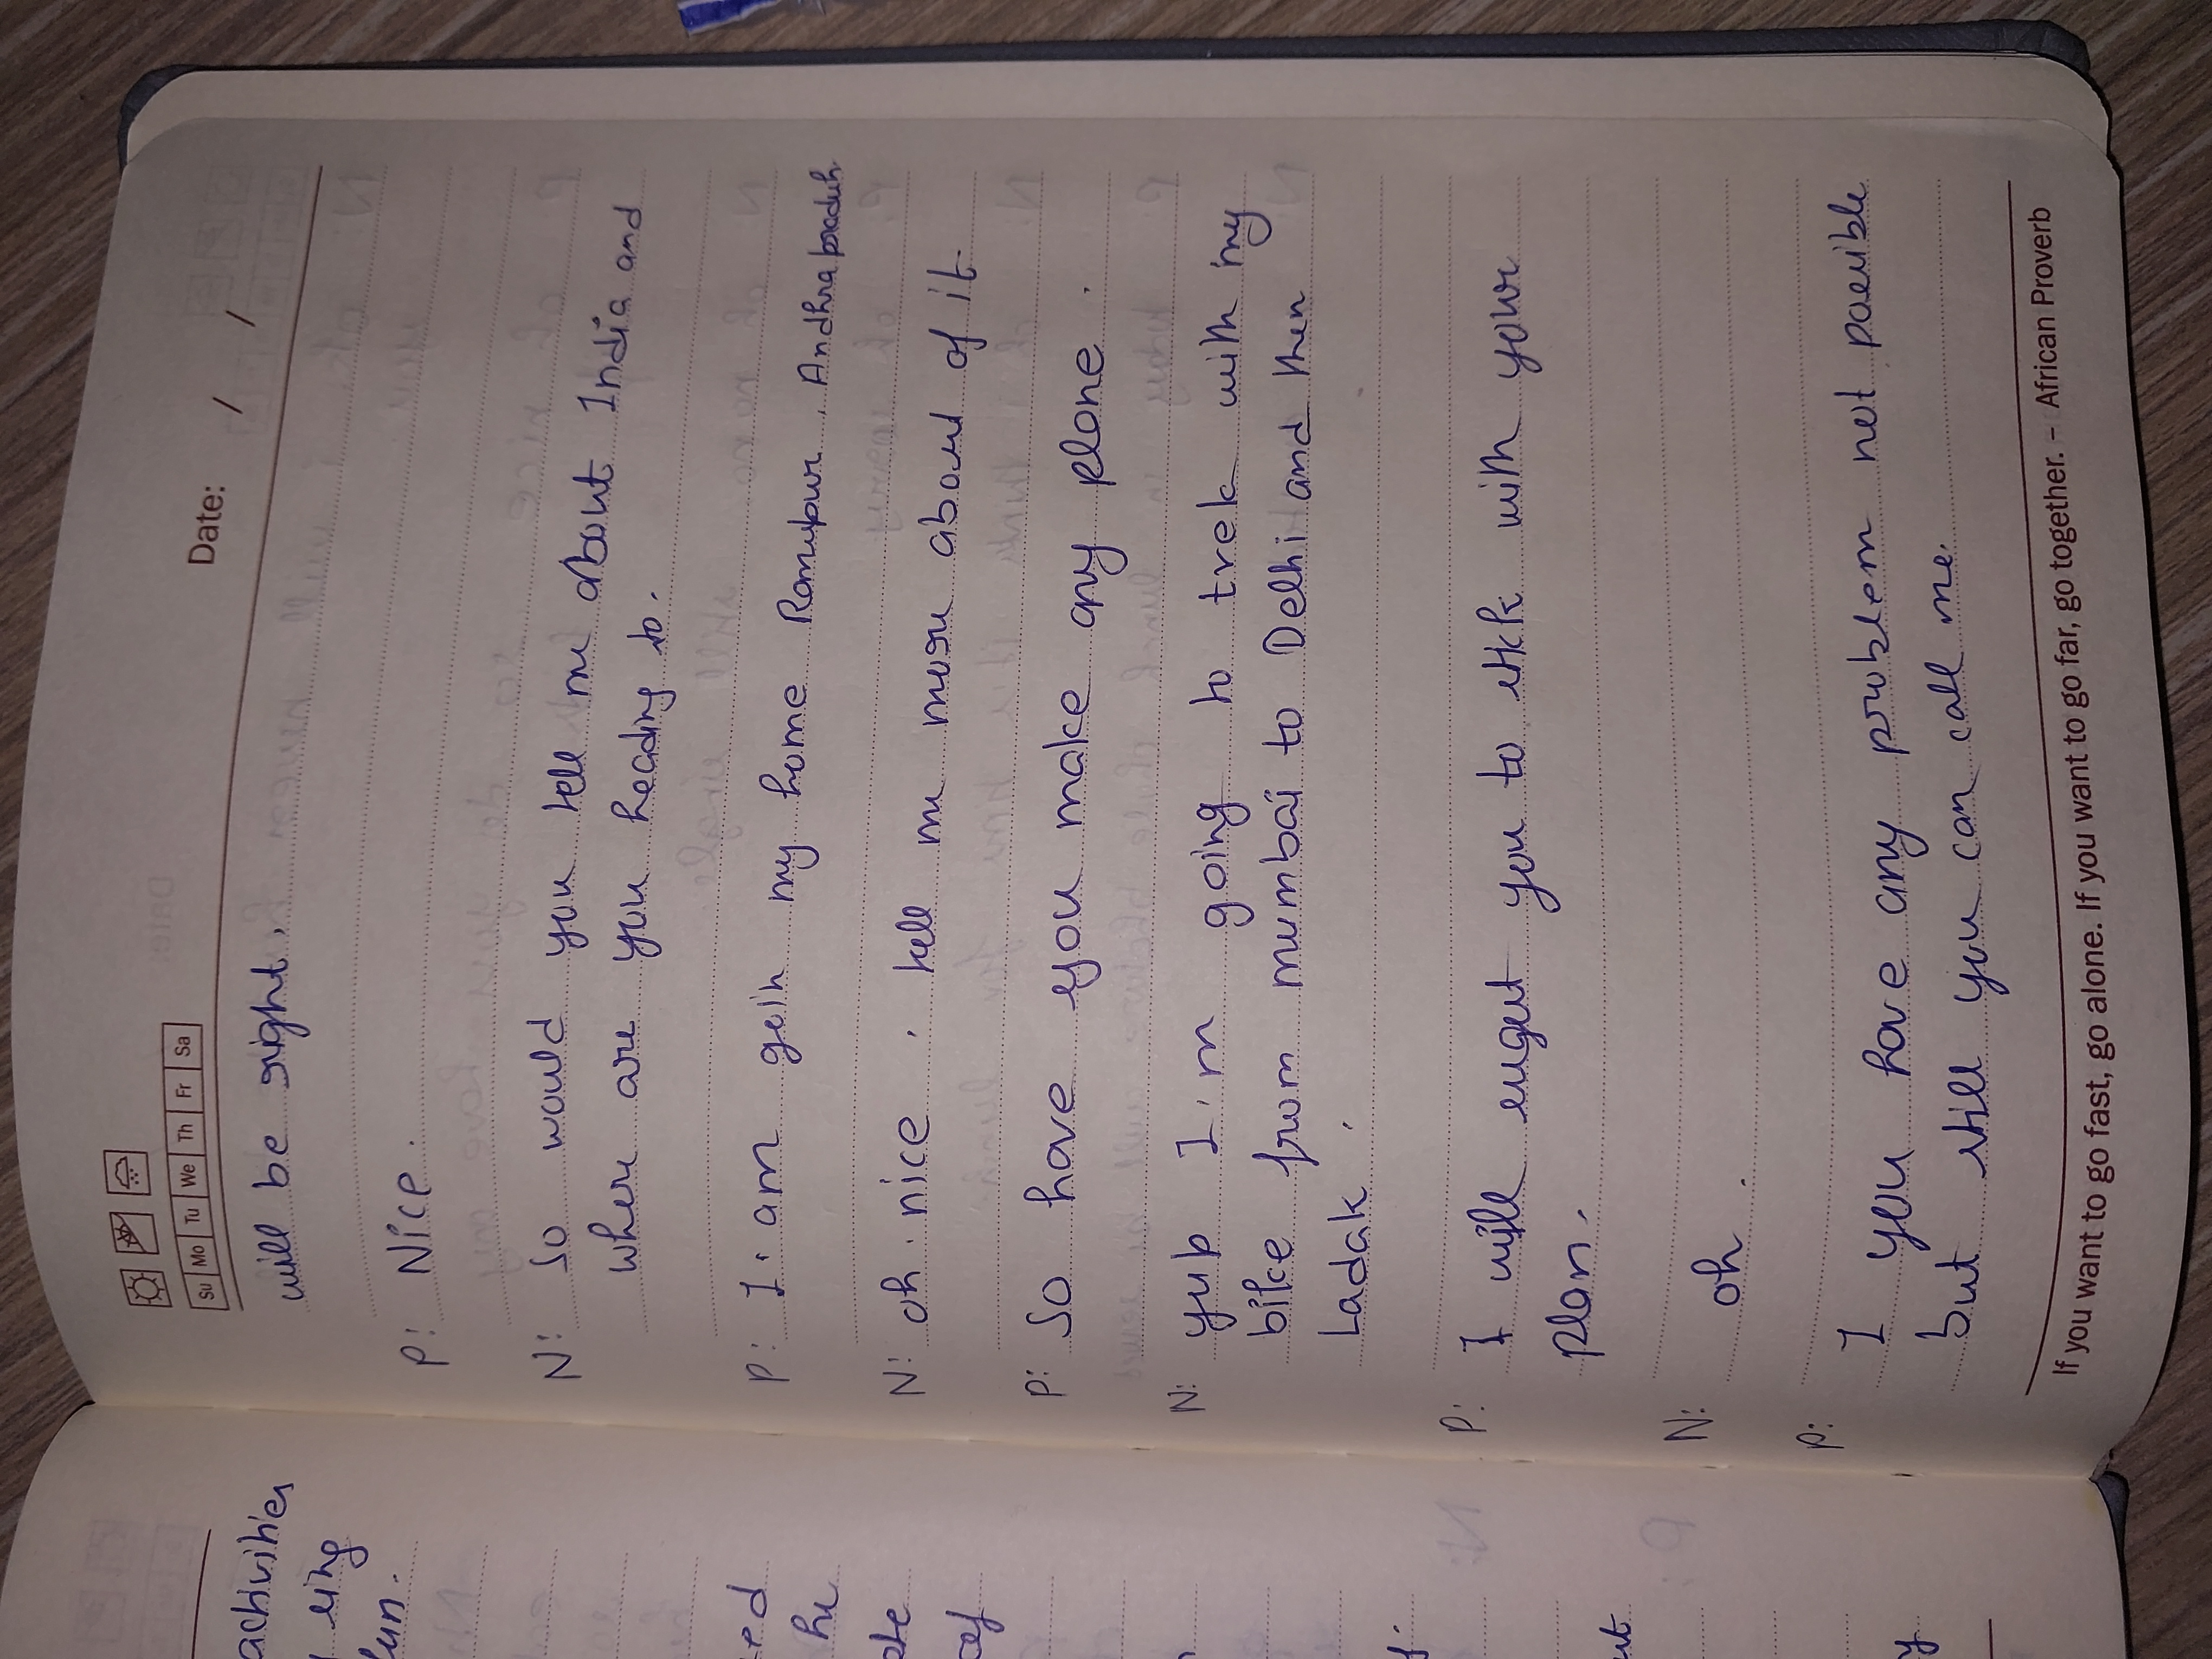 activities
ring
fun.
he
Su Mo Tu We Th Fr Sa
Date: / /
will be right.
P: Nice.
N: So would you tell me about India and
where are you heading to.
P: I am goin my home , Andhra
N: oh. nice . tell me more about of it.
P: So have you make any plane .
N: yup I'm going to trek with my
bike from mumbai to Delhi and then
Ladak .
P: I will sugest you to stick with your
plan.
N: oh .
P: I you have any problem not possible
but still you can call me.
If you want to go fast, go alone. If you want to go far, go together. – African Proverb